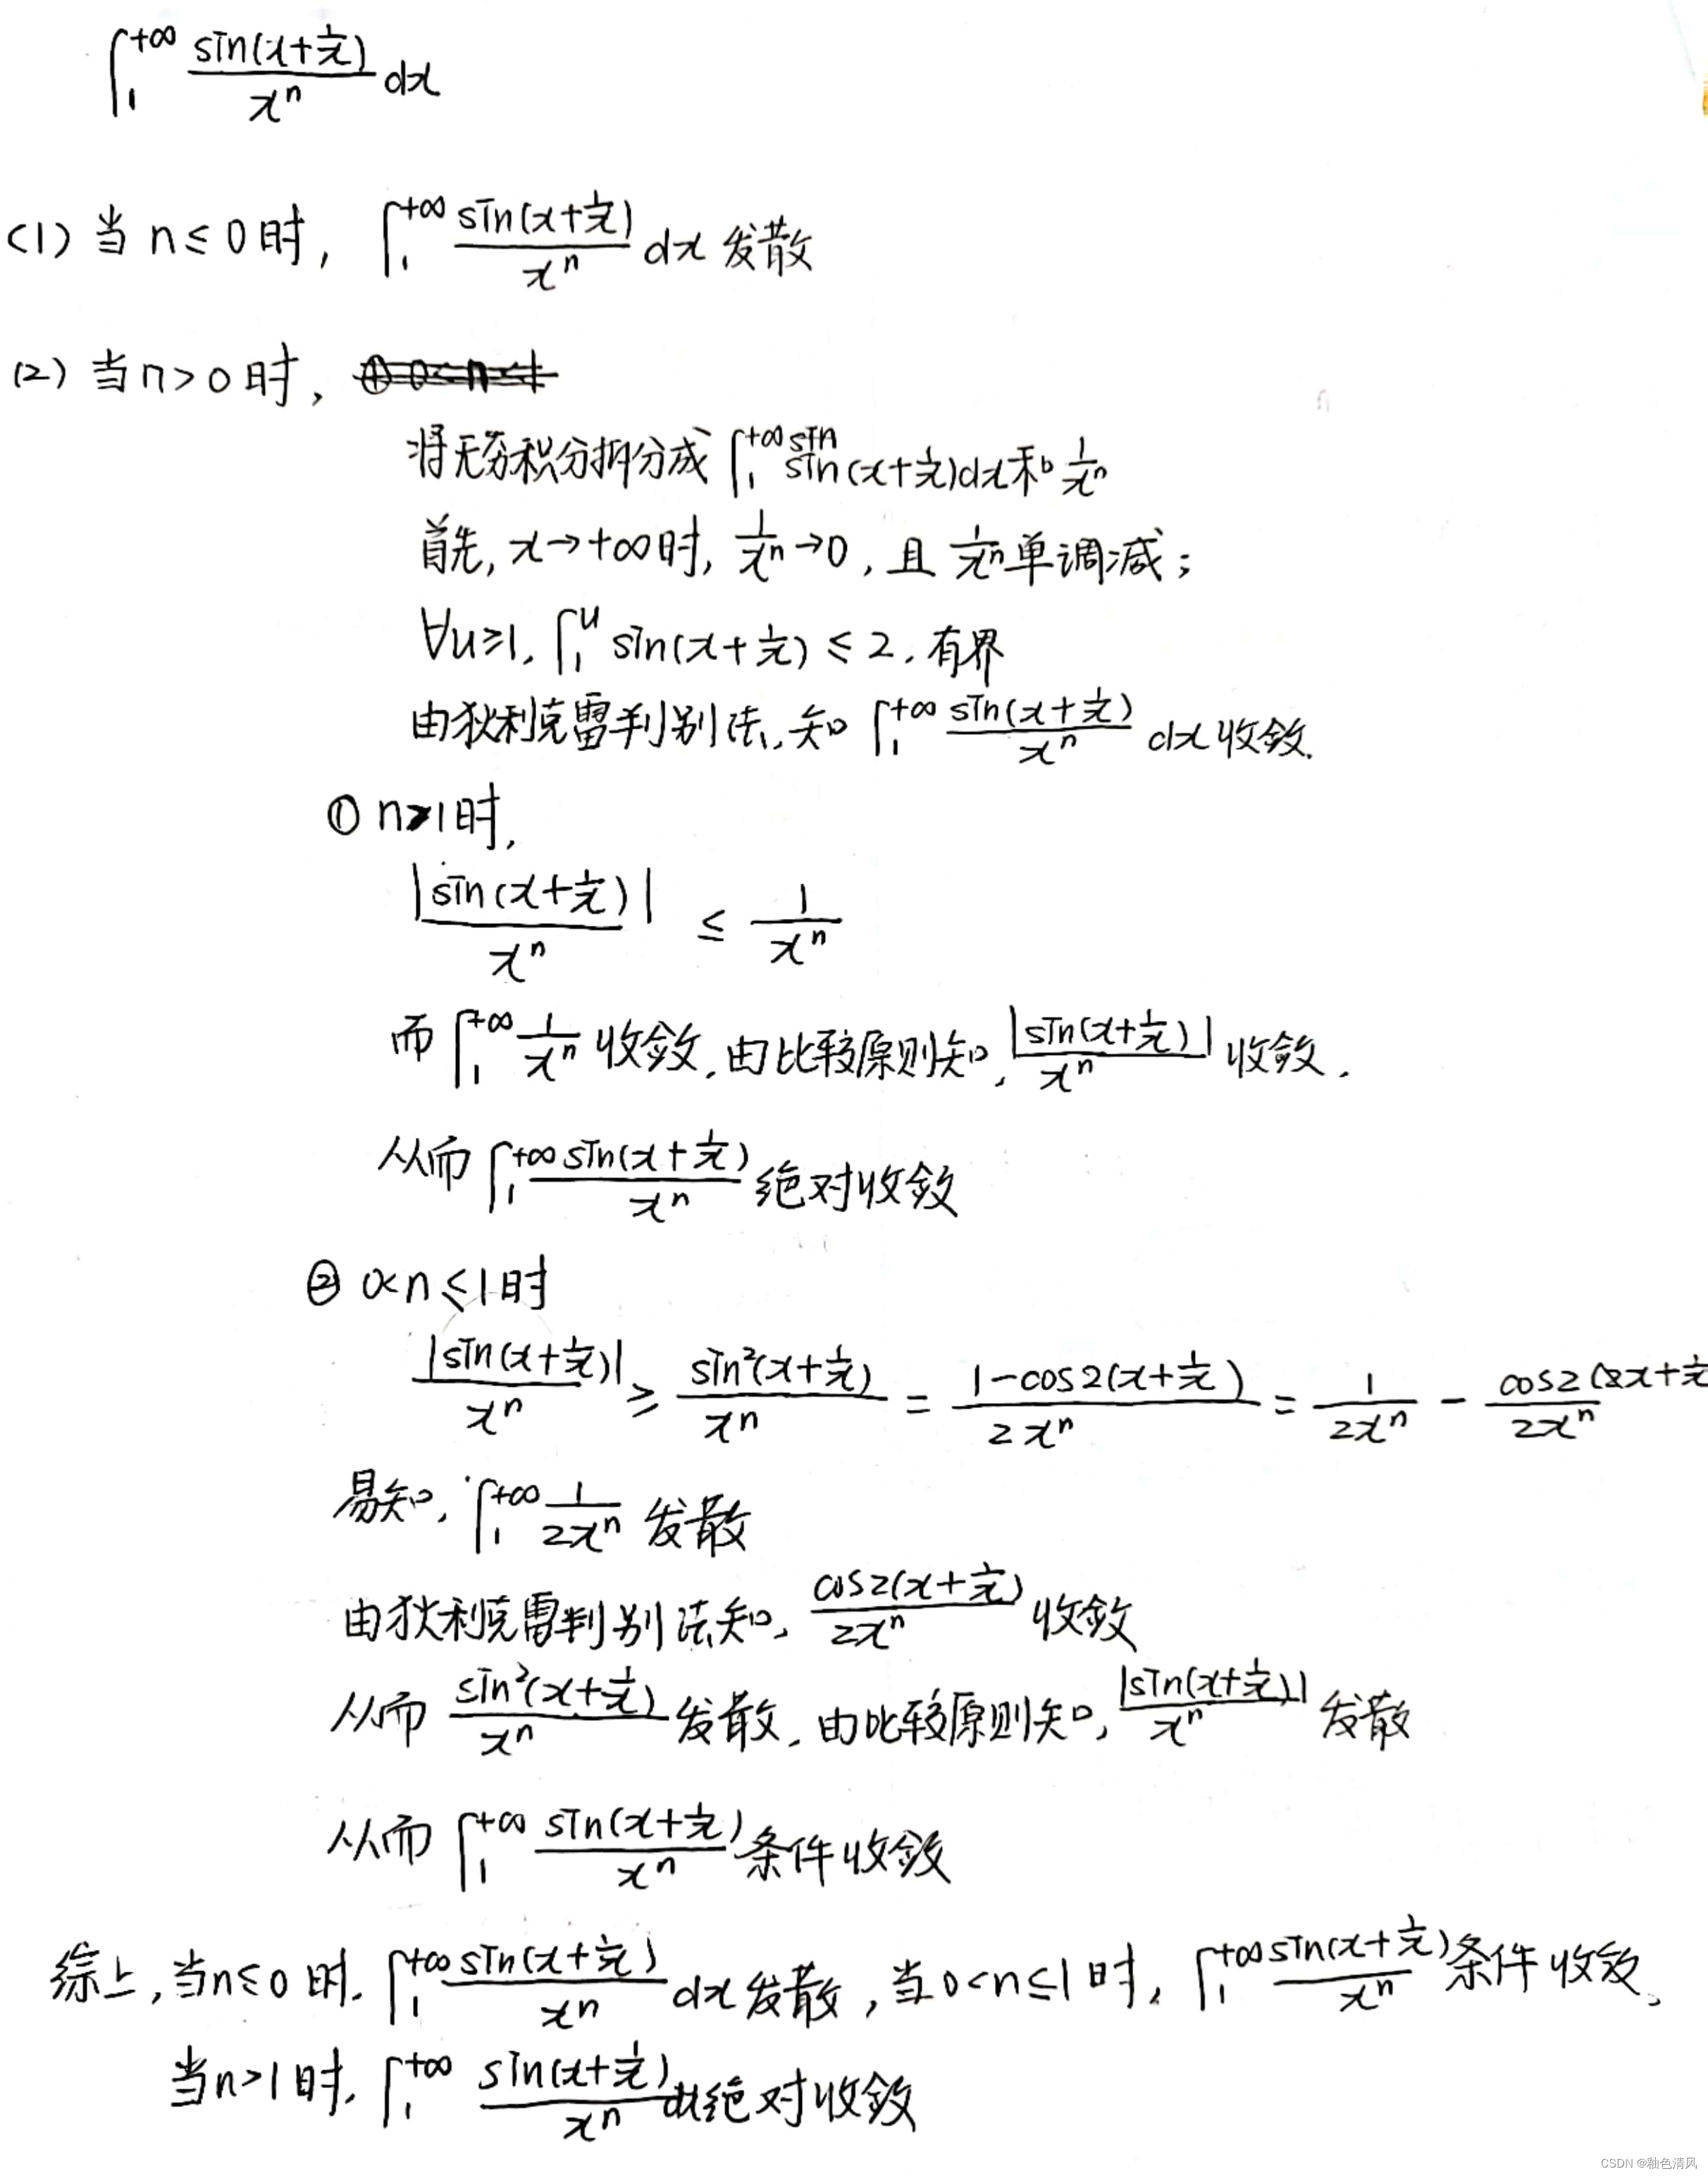 ∫₁^{+∞} sin(x+1/x)/xⁿ dx
(1) 当 n≤0时, ∫₁^{+∞} sin(x+1/x)/xⁿ dx 发散
(2) 当n>0时,
将无穷积分拆分成 ∫₁^{+∞} sin sin(x+1/x)dx和 1/xⁿ
首先, x→+∞时, 1/xⁿ→0, 且 1/xⁿ单调减;
∀u≥1, ∫₁^u sin(x+1/x) ≤ 2, 有界
由狄利克雷判别法, 知 ∫₁^{+∞} sin(x+1/x)/xⁿ dx收敛.
① n>1时,
|sin(x+1/x)|/xⁿ ≤ 1/xⁿ
而 ∫₁^{+∞} 1/xⁿ 收敛, 由比较原则知, |sin(x+1/x)|/xⁿ 收敛.
从而 ∫₁^{+∞} sin(x+1/x)/xⁿ 绝对收敛
② 0<n≤1时
|sin(x+1/x)|/xⁿ ≥ sin²(x+1/x)/xⁿ = 1-cos2(x+1/x)/2xⁿ = 1/2xⁿ - cos2(2x+1/x/2xⁿ
易知, ∫₁^{+∞} 1/2xⁿ 发散
由狄利克雷判别法知, cos2(x+1/x)/2xⁿ 收敛
从而 sin²(x+1/x)/xⁿ 发散, 由比较原则知, |sin(x+1/x)|/xⁿ 发散
从而 ∫₁^{+∞} sin(x+1/x)/xⁿ 条件收敛
综上, 当n≤0时, ∫₁^{+∞} sin(x+1/x)/xⁿ dx发散, 当0<n≤1时, ∫₁^{+∞} sin(x+1/x)/xⁿ 条件收敛,
当n>1时, ∫₁^{+∞} sin(x+1/x)/xⁿ dx绝对收敛
CSDN @釉色清风